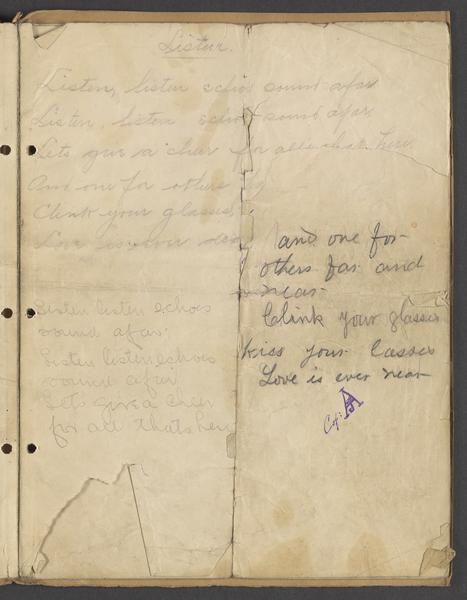 Listen.
Listen, listen echos sound afar
Listen listen echos sound afar
Lets give a cheer for all that's here
And one for others
Clink your glasses
Love is ever near
Listen listen echoes
sound afar
Listen listen echoes
sound afar
Lets give a cheer
for all thats here
and one for
others far and
near
Clink your glasses
Kiss your lasses
Love is ever near
A